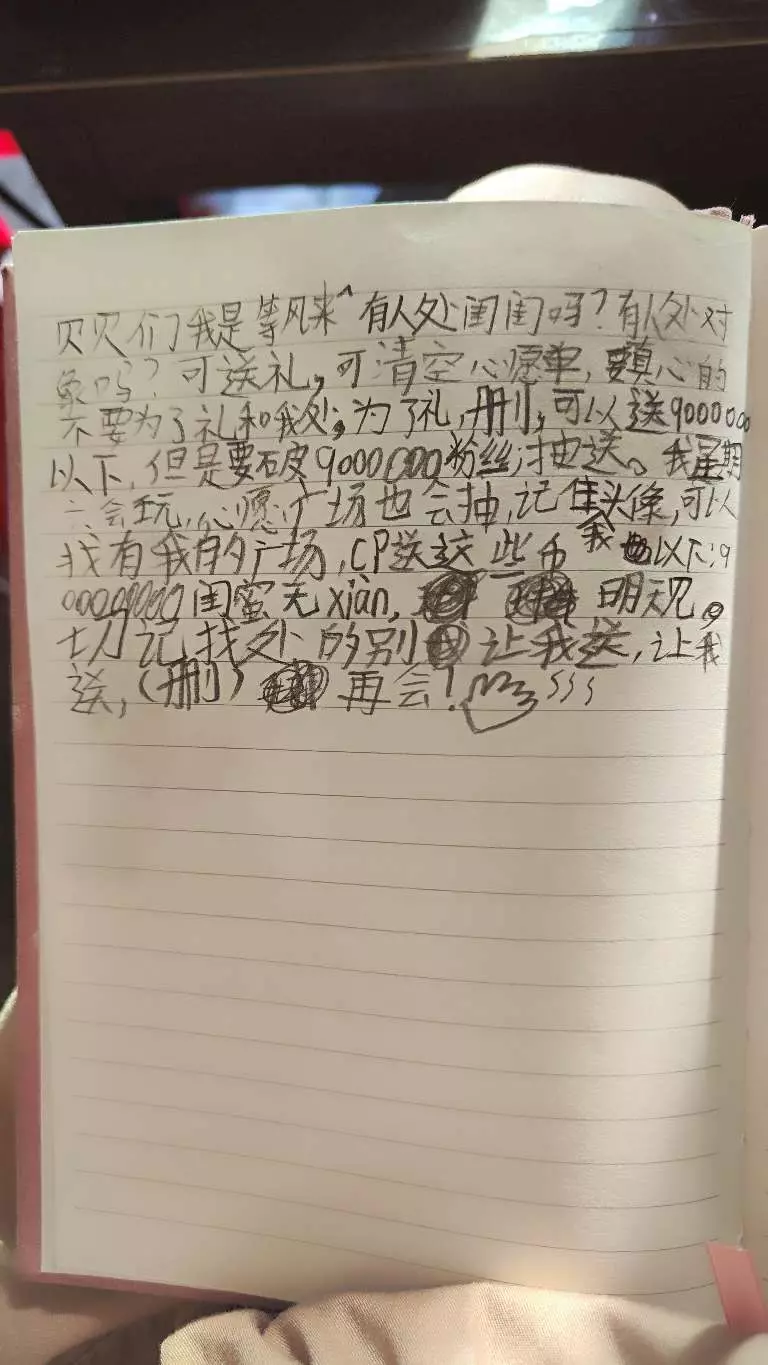 贝贝们我是等风来^有人处闺闺吗？有人处对
象吗？可送礼，可清空心愿单，要真心的
不要为了礼和我处，为了礼，删，可以送9000000
以下，但是要破9000000粉丝，抽送。我星期
六会玩，心愿广场也会抽，记住我头像，可以
找有我的广场，CP送这些币 也以下：9
00000000闺蜜无xiàn， 明天见。
切记找处的别 让我送，让我
送，（删） 再会！sss